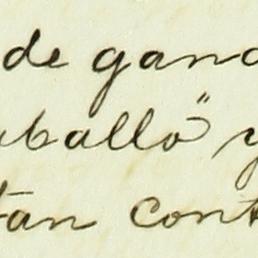 de gana
aballo" y
tan cont